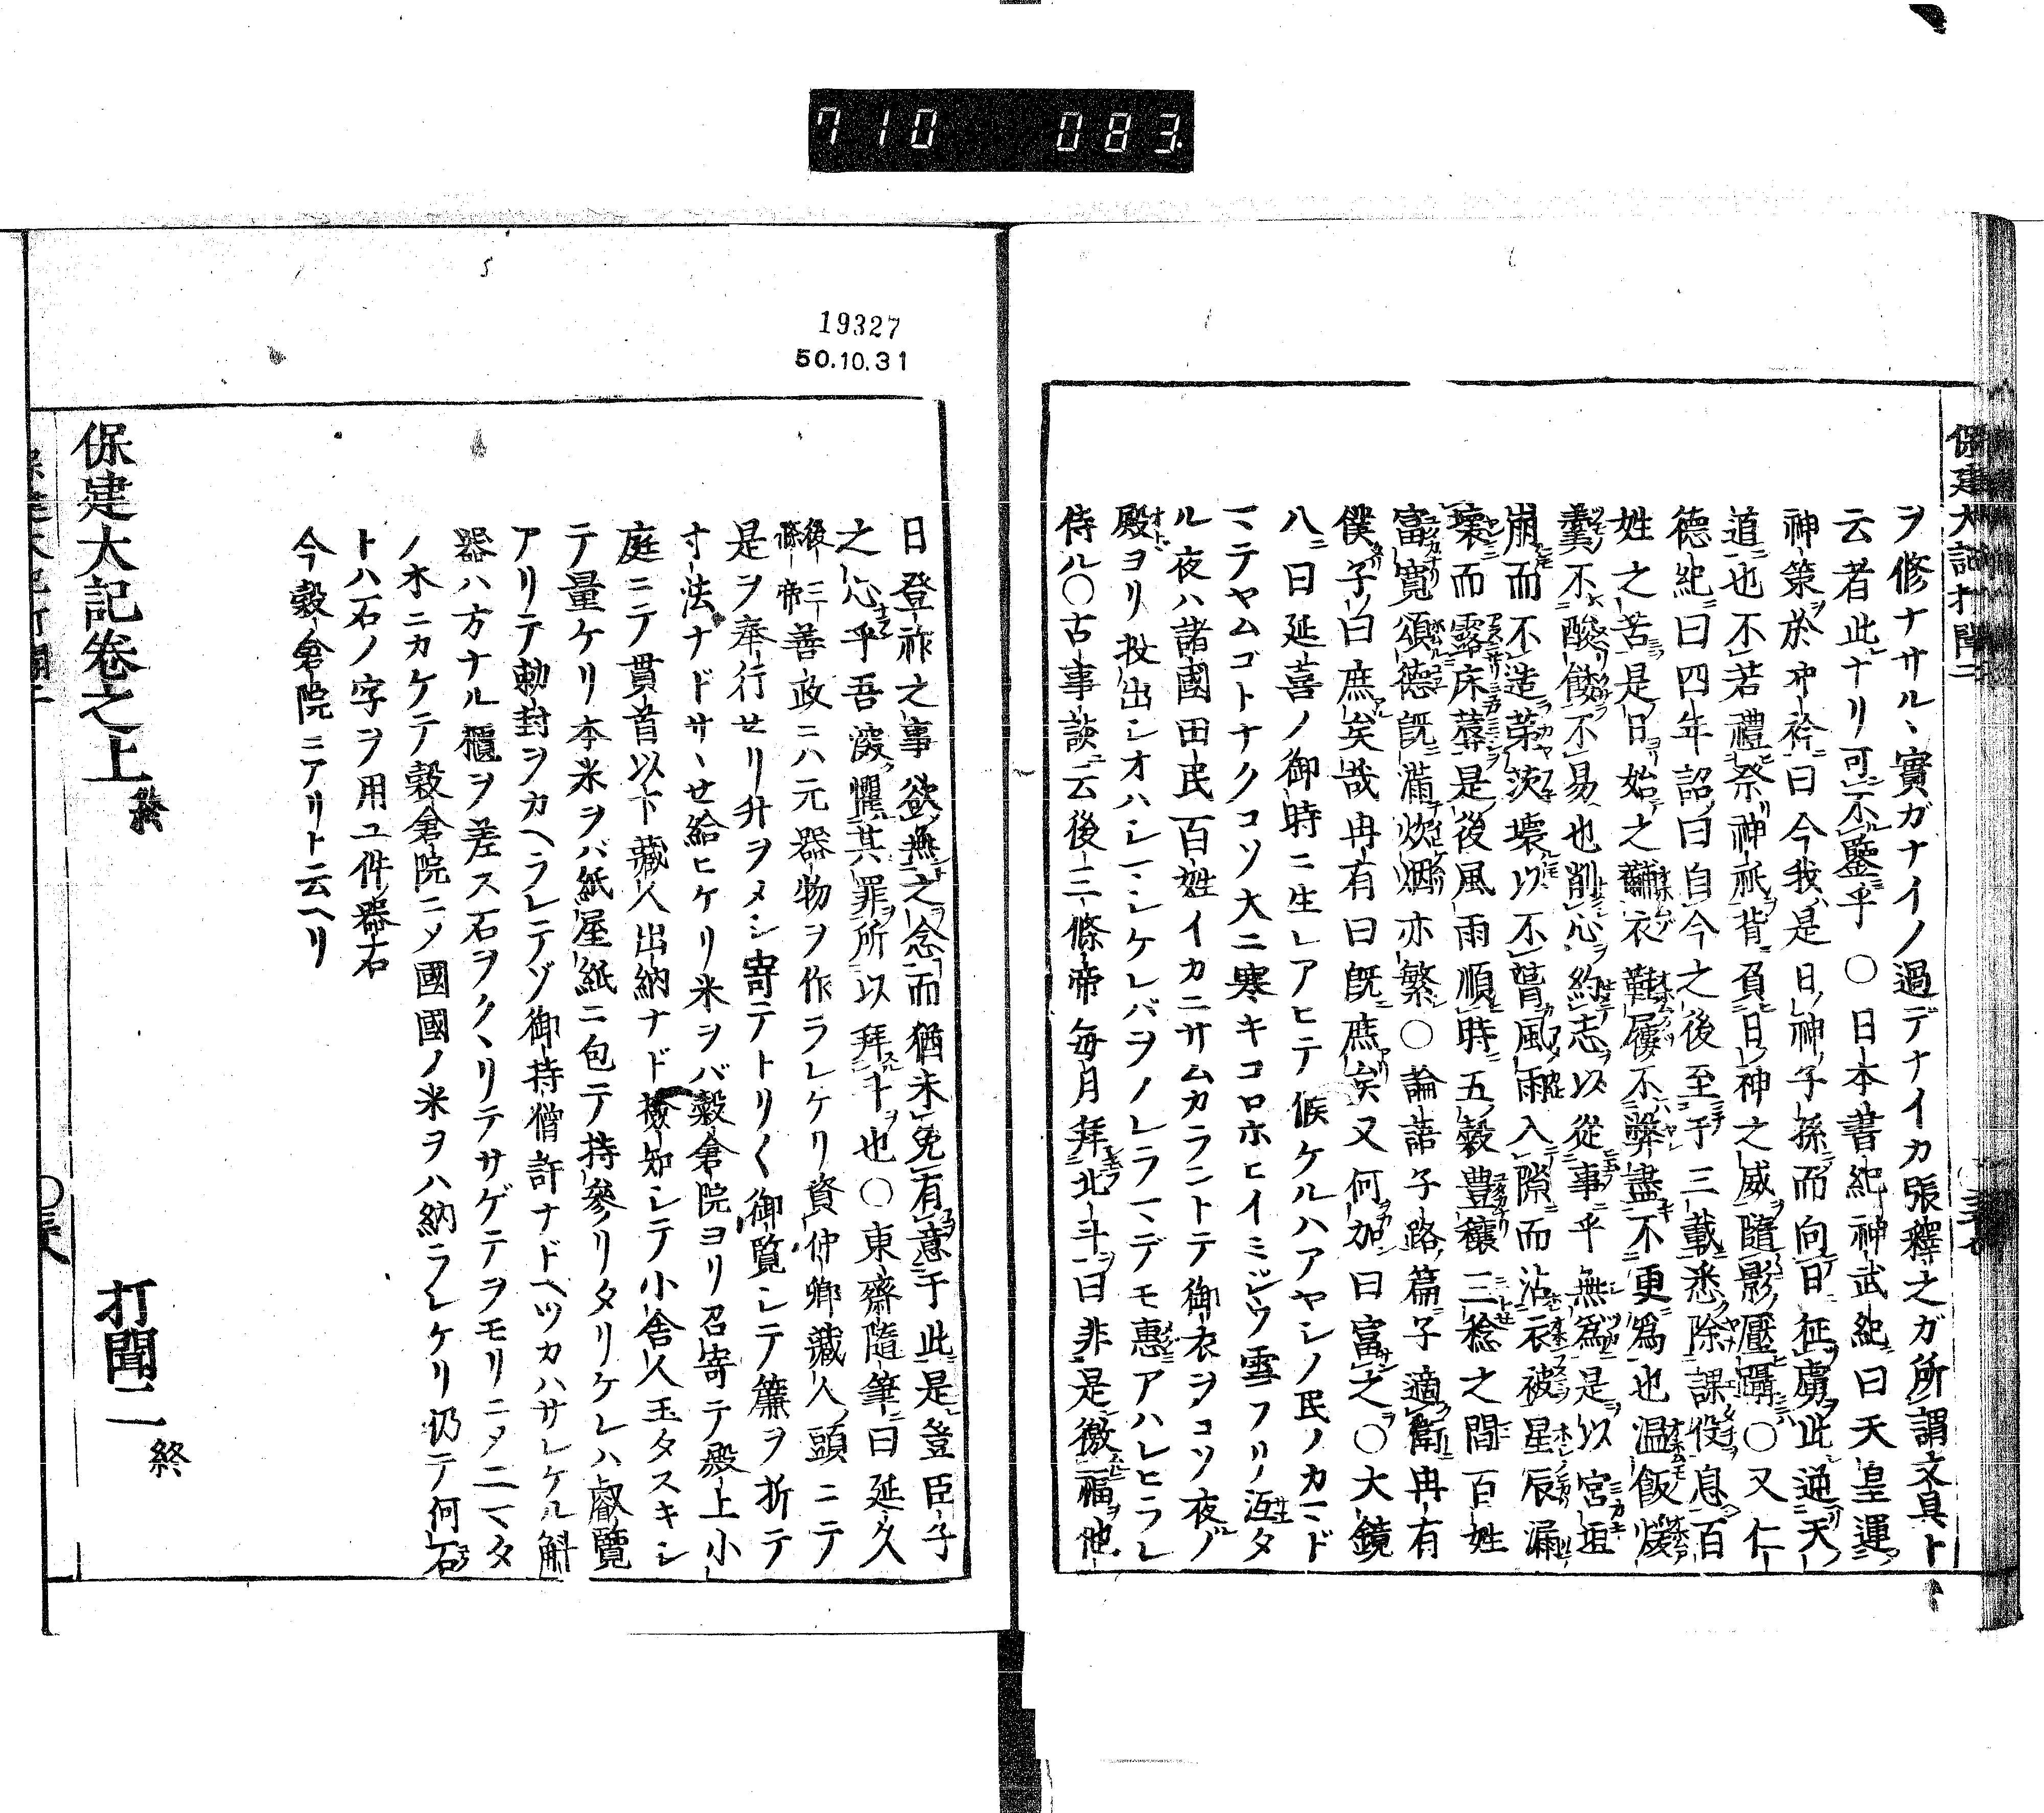 710 083
19327
50.10.31
保建大記打聞二
ヲ修ナサル、實ガナイノ過デナイカ張釋之ガ所謂文具ト
云者此ナリ可不鑒乎 〇日本書紀神武紀曰天皇運
神策於冲衿曰今我是日神子孫而向日征虜此逆天
道也不若禮祭神祇背負日神之威隨影壓躡〇又仁
德紀曰四年詔曰自今之後至于三載悉除課役息百
姓之苦是日始之黼衣鞋屨不弊盡不更爲也温飯煖
羹不酸餧不易也削心約志以從事乎無爲是以宮垣
崩而不造茅茨壞以不葺風雨入隙而沾衣被星辰漏
壞而露床蓐是後風雨順時五穀豊穰三稔之間百姓
富寛頌德旣滿炊烟亦繁〇論語子路篇子適衞冉有
僕子曰庶矣哉冉有曰旣庶矣又何加曰富之〇大鏡
八曰延喜ノ御時ニ生レアヒテ候ケルハアヤシノ民ノカマド
マテヤムゴトナクコソ大ニ寒キコロホヒイミジウ雪フリ冱タ
ル夜ハ諸國田民百姓イカニサムカラントテ御衣ヲコソ夜ノ
殿ヨリ投出シオハシマシケレバヲノレラマデモ惠アハレヒラレ
侍ル〇古事談云後三條帝每月拜北斗曰非是徼福也
日登祚之事欲無之念而猶未免有意于此是豈臣子
之心乎吾深懼其罪所以拜斗也〇東齋隨筆曰延久
後三條帝善政ニハ元器物ヲ作ラレケリ資仲卿藏人頭ニテ
是ヲ奉行セリ升ヲメシ寄テトリ〱御覽シテ簾ヲ折テ
寸法ナドサ、セ給ヒケリ米ヲバ穀倉院ヨリ召寄テ殿上小
庭ニテ貫首以下藏人出納ナド檢知シテ小舍人玉タスキシ
テ量ケリ本米ヲバ紙屋紙ニ包テ持參リタリケレハ叡覽
アリテ勅封ヲカヘラレテゾ御持僧許ナドヘツカハサレケル斛
器ハ方ナル櫃ヲ差ス石ヲク、リテサゲテヲモリニメニマタ
ノ木ニカケテ穀倉院ニメ國國ノ米ヲハ納ラレケリ仍テ何石
トハ石ノ字ヲ用ユ件器石
今穀倉院ニアリト云ヘリ
保建大記卷之上終
打聞二終